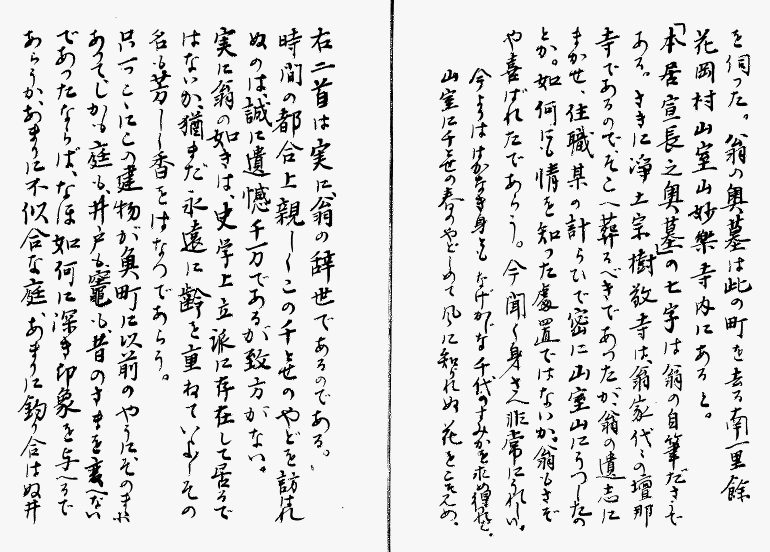 を伺つた。翁の奥墓は此の町を去る南一里餘
花岡村山室山妙樂寺内にあると。
「本居宣長之奥墓」の七字は翁の自筆ださうで
ある。さきに浄土宗樹敬寺は、翁家代々の壇那
寺であるので、そこへ葬るべきであつたが、翁の遺志に
まかせ、住職某の計らひで密に山室山にうつしたの
とか。如何にも情を知つた處置ではないか。翁もさぞ
や喜ばれたであらう。今聞く身さへ非常にうれしい。
今よりははかなき身とはなげかじな千代のすみかを求め得つれば。
山室に千とせの春のやどしめて風に知られぬ花をこそ見め。
右二首は実に、翁の辞世であるのである。
時間の都合上親しくこの千とせのやどを訪はれ
ぬのは、誠に遺憾千万であるが致方がない。
実に翁の如きは、史学上立派に存在して居るで
はないか、猶まだ永遠に齢を重ねていよ〳〵その
名も芳しく香をはなつであらう。
只一つこゝにこの建物が魚町に以前のやうにそのまゝ
あつてしかも庭も、井戸も竈も、昔のさまを変へない
であつたならば、なほ如何に深き印象を与へるで
あらうか、あまりに不似合な庭、あまりに釣り合はぬ井